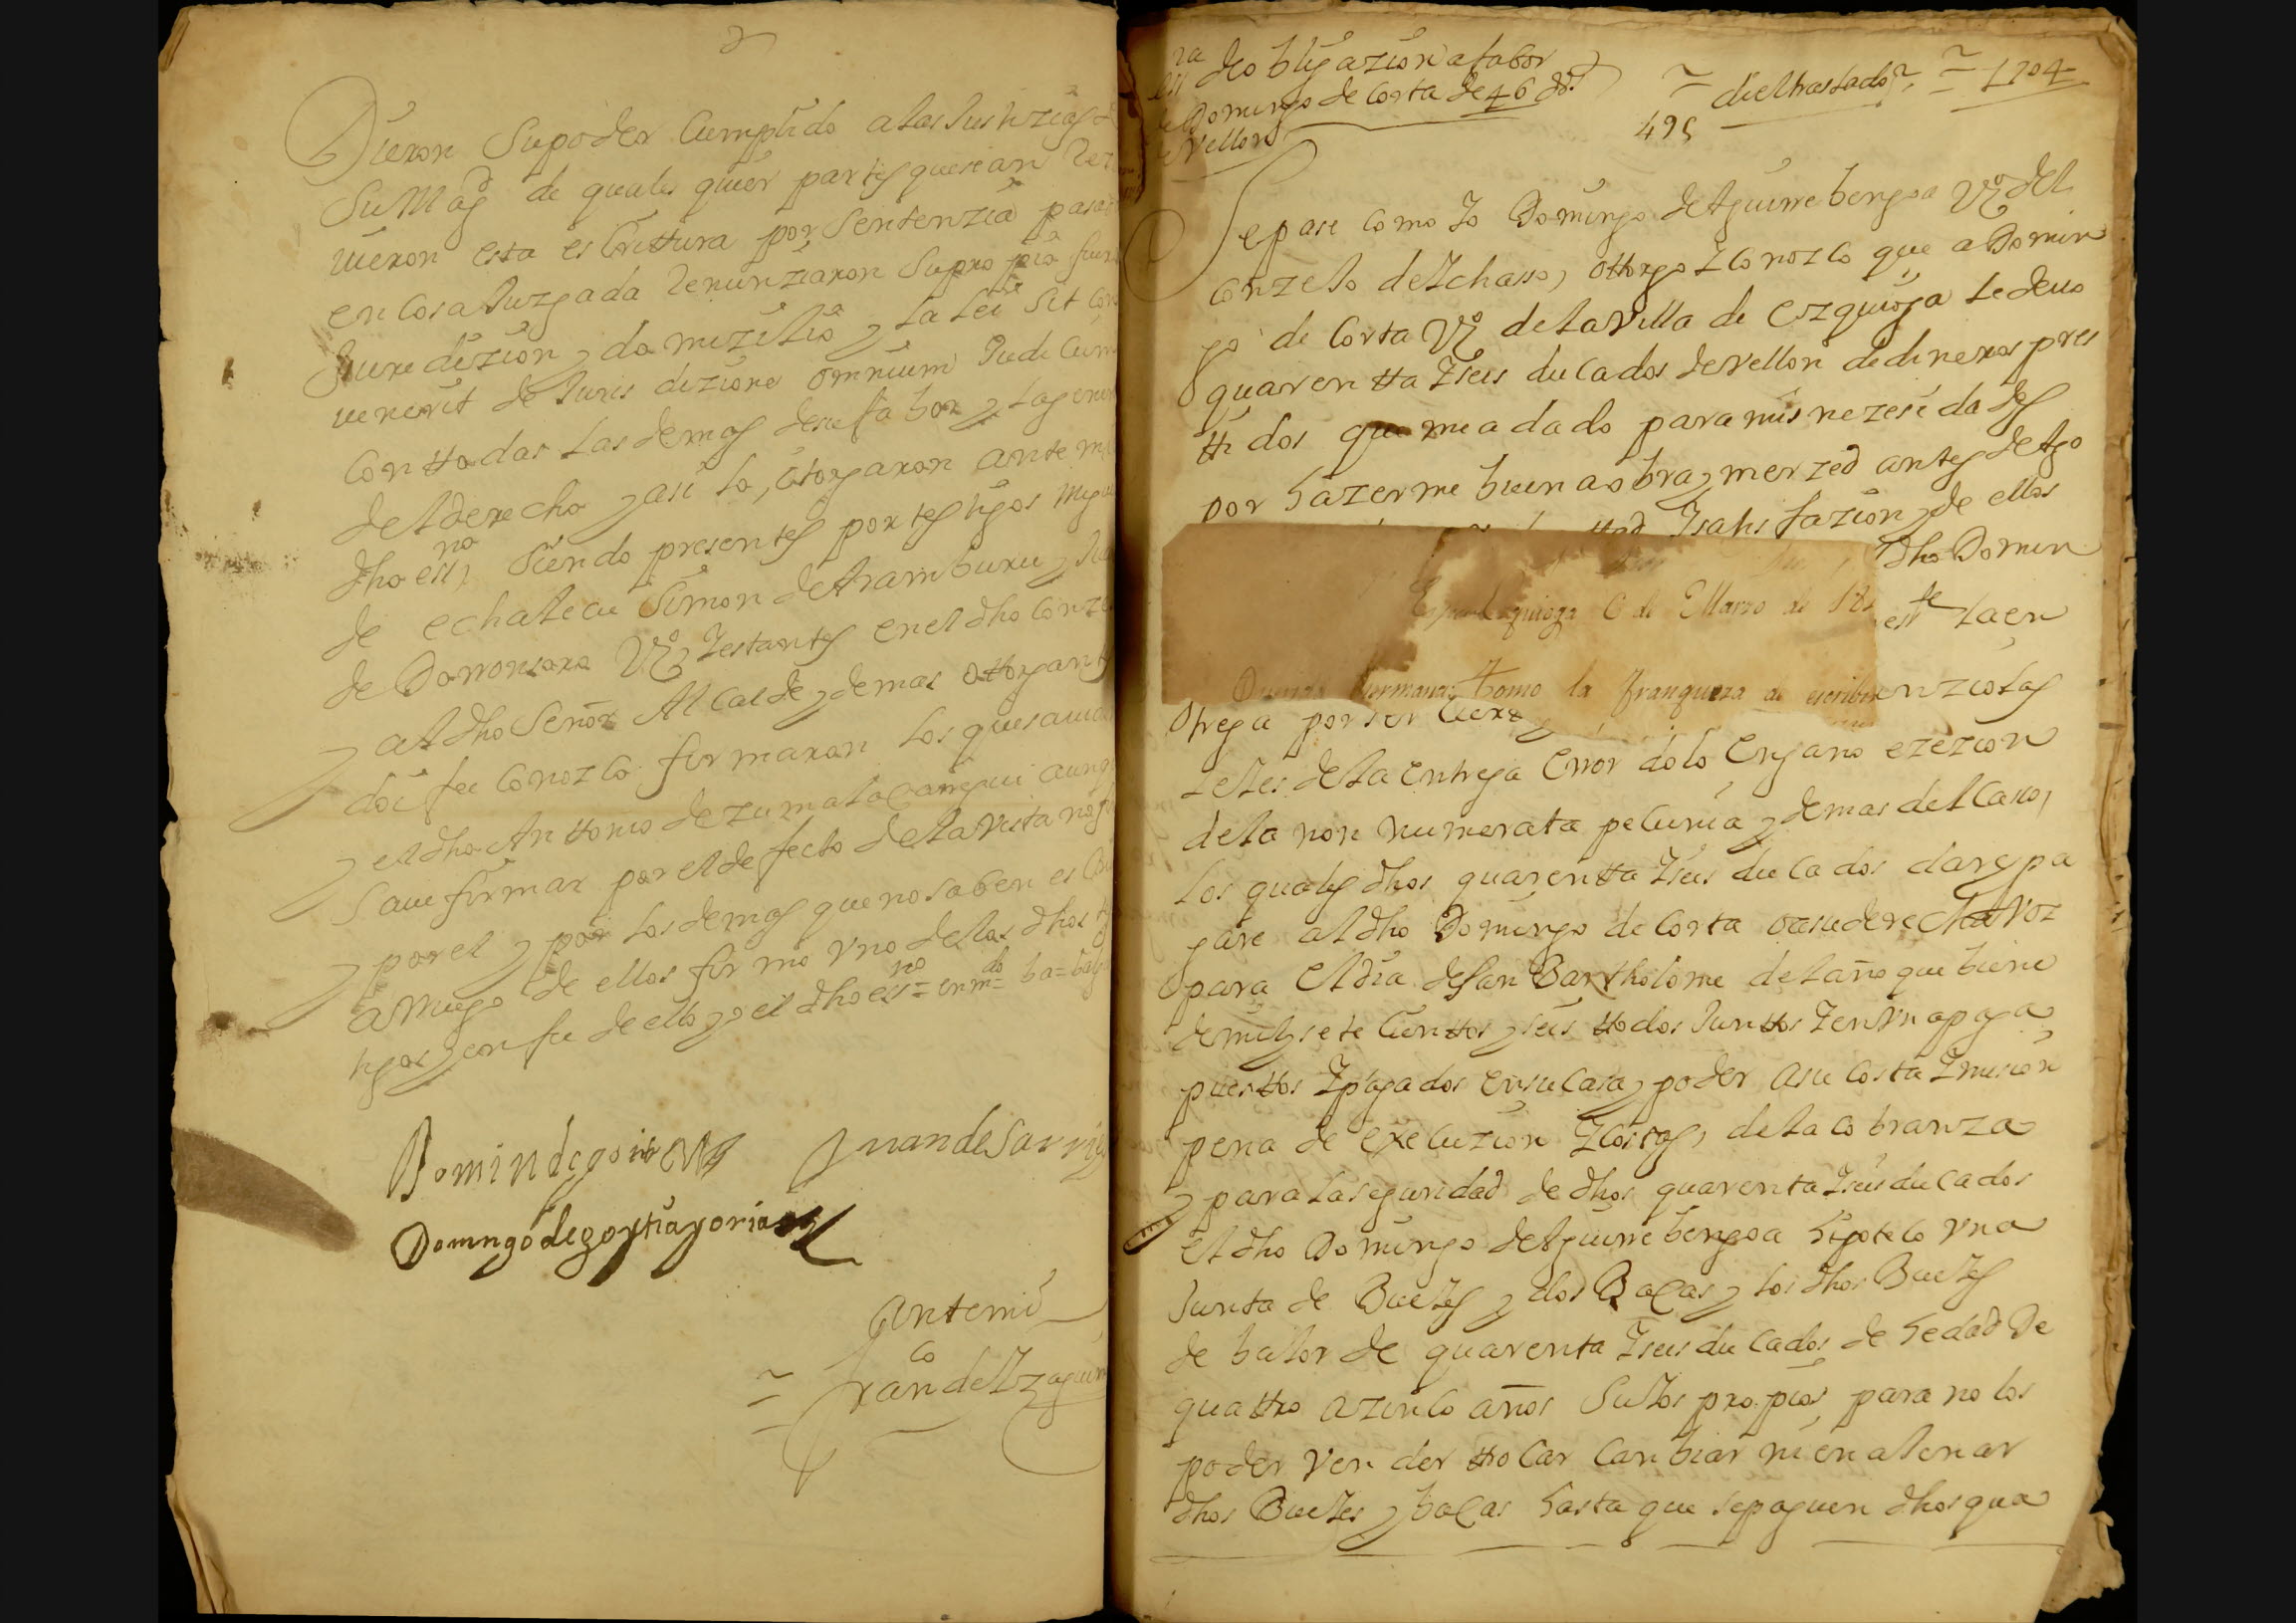 Dieron Supoder Cumplido alas Justizias de
SuMag.d de quales quier partes quesean Rez
uieron esta esCrittura por Sentenzia pasad
en Cosa Juzgada Renunziaron Supro pio fuer
Jure dizion y do mizilio y la Lei Sit Con
uenerit de Juris dizione omnium Judi Cum
Con ttodas las demas desufabor y la gener
delderecho y asi lo, otorgaron ante mi
dho essno Siendo presentes por testigos Migu
de echaleCu Simon deAramburu y Jua
de Doronsoro Vos y estantes enel dho Conze
y al dho Señor AlCalde y demas ottorgantes
doi fee Conozco firmaron los quesauian
y eldho Anttonio dezumalaCarregui aunq
Saue firmar por elde fecto delavista nofi
y porel y por los demas que no saben esCri
a Ruego de ellos firmo vno delos dhos tes
tigos y enfee de ello yo el dho essno = enmdo = ba =
Domin degoi
JuandeSarri
Domingo degoytiayoria
Antemi
Franco deYzaguirr
ra deobligazion afabor
de Domingo de Corta de 46 dos
de Vellon
dieltraslado
1704
495
Sepase Como Yo Domingo deAguirre bengoa Vo del
Conzejo deYchasso, ottorgo y Conozco que a Domin
go de Corta Vo delaVilla de ezquioga le deuo
quarentta y seis duCados devellon dedineros pres
tti dos que mea dado para mis nezesidades
por hazerme buena obra y merzed antes deAgo
y satisfazion de ellos
dho Domin
quioga 6 de Marzo de 18
este laen
Querida hermana: Tomo la franqueza de escribir
nziolas
trega por ser Cierta
Leies dela entrega error dolo engano ezezion
dela non numerata peCunia y demas delCaso,
los quales dhos quarentta y seis duCados dare y pa
gare aldho Domingo de Corta o asuderecho Voz
para eldia deSan Bartholome delaño que biene
demil y sete Cienttos y seis ttodos Junttos y en Vna paga
puesttos y pagados ensuCasa y poder asu Costa y mision
pena de exeCuzion y Costas, dela Cobranza
y para laseguridad de dhos quarenta y seis duCados
eldho Domingo deAguirre bengoa hipoteCo vna
Junta de Bueies y dos BaCas y los dhos Bueies
de balor de quarenta y seis duCados de hedad De
quattro azinCo años Suios propios para no los
poder Ven der ttroCar Canbiar ni enalenar
dhos Bueies y baCas hasta que sepaguen dhos qua